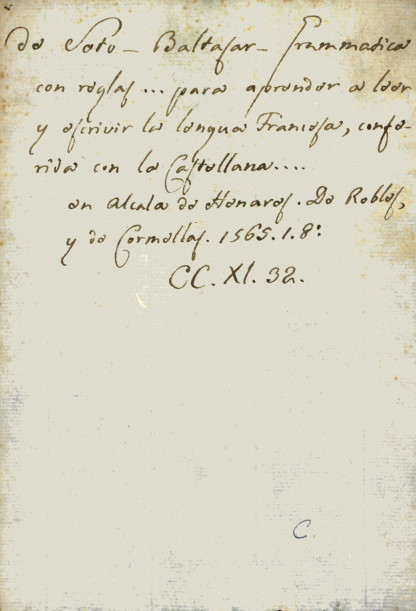 de Soto - Baltasar - Grammatica
con reglas ... para aprender a leer
y escrivir la lengua Francesa, confe-
rida con la Castellana....
en Alcala de Henares. De Robles,
y de Cormellas. 1565. 1. 8º
CC. XI. 32.
C.